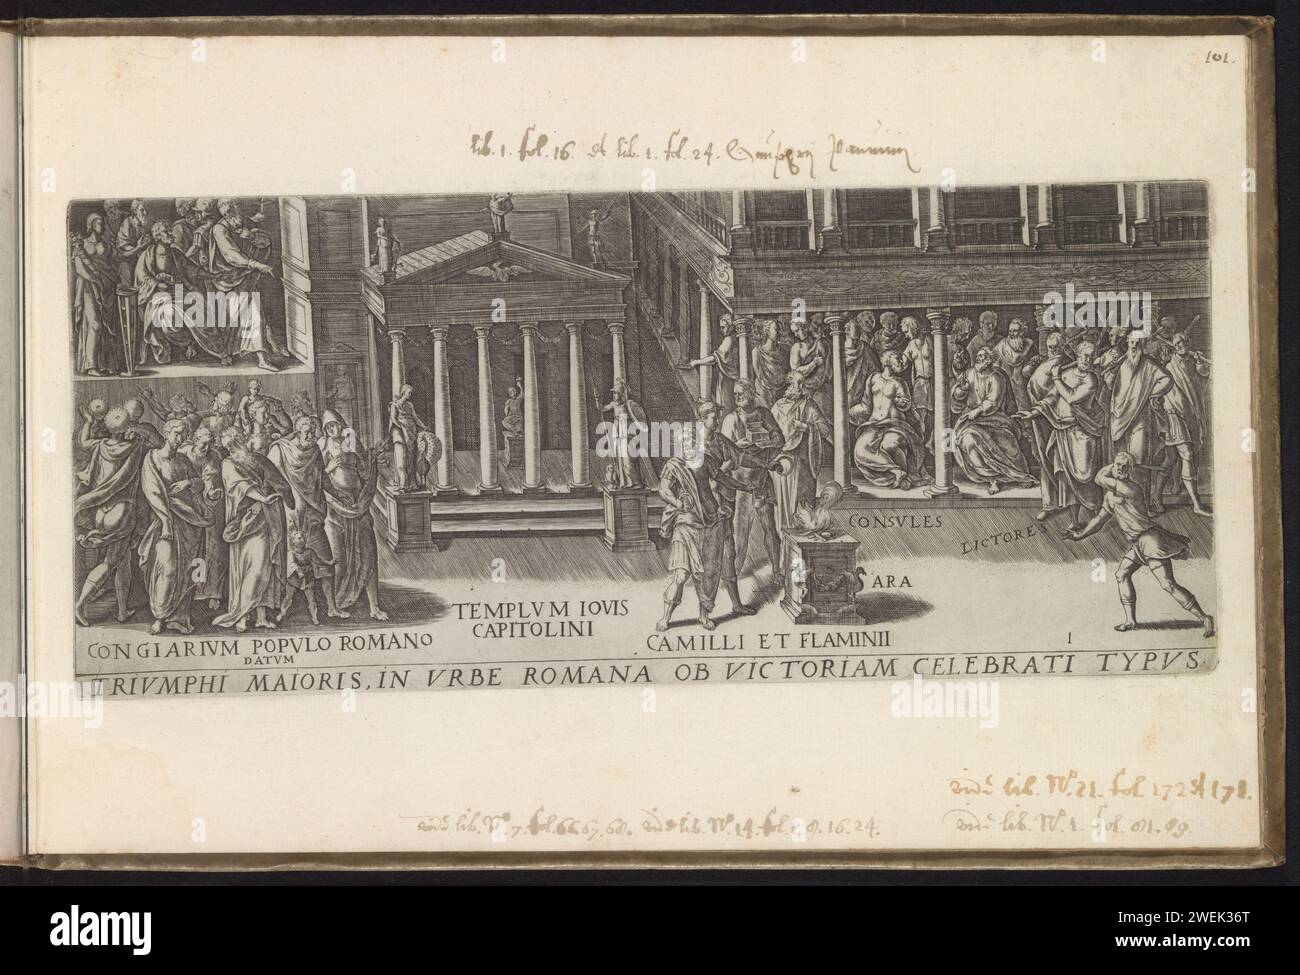 101.
lib. 1. fol. 16. et lib. 1. fol. 24.
CONSVLES
LICTORES
ARA
TEMPLVM IOVIS
CAPITOLINI
CONGIARIVM POPVLO ROMANO
DATVM
CAMILLI ET FLAMINII
1
TRIVMPHI MAIORIS, IN VRBE ROMANA OB VICTORIAM CELEBRATI TYPVS.
lib. Nº. 21. fol. 172
lib. Nº. 7. fol. 66. 67. 68. lib. Nº. 14. fol. 16. 24.
lib. Nº. 1. fol.
alamy
Image ID: 2WEK36T
www.alamy.com